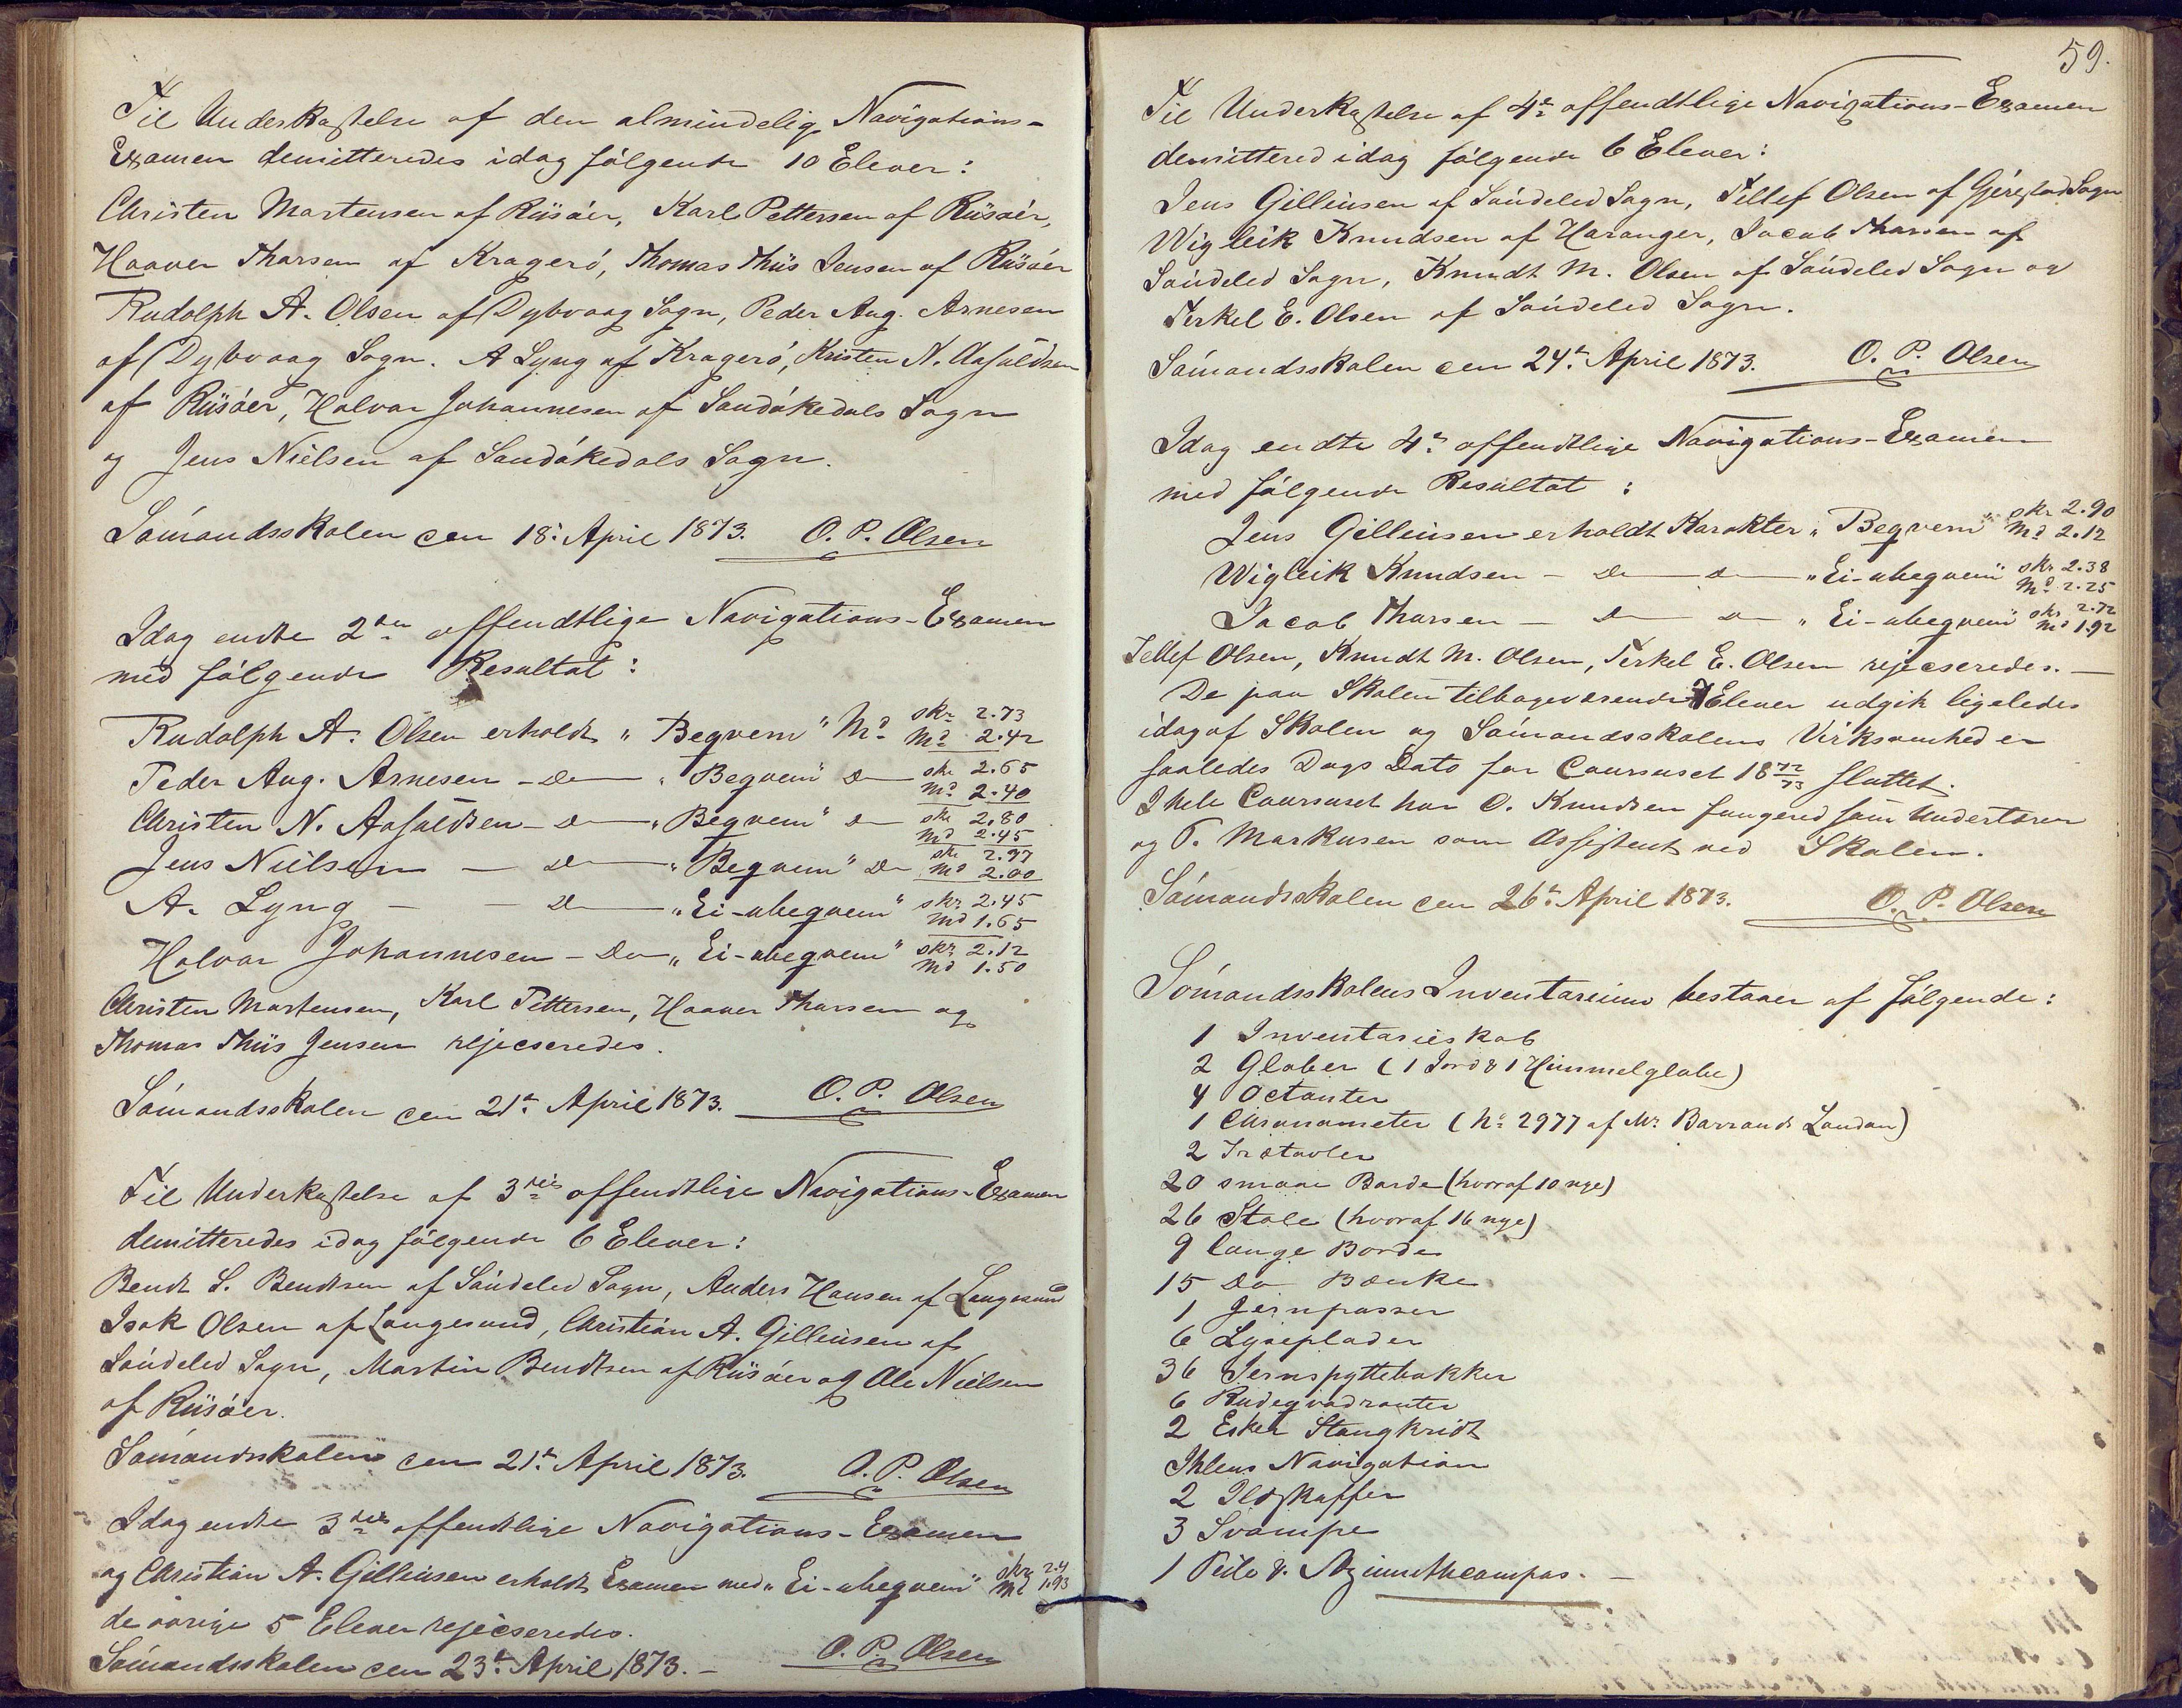 Til Underkastelse af den almindelige Navigations-
Examen demitteredes idag følgende 10 Elever:
Christen Martensen af Riisøer, Karl Pettersen af Riisøer,
Haaver Tharsen af Kragerø, Thomas Thiis Jensen af Riisøer
Rudolph A. Olsen af Dybvaag Sogn, Peder Aug. Arnesen
af Dybvaag Sogn. A Lyng af Kragerø, Kristen N. Aasuldsen
af Riisøer, Halvor Johannesen af Sandøkedals Sogn
og Jens Nielsen af Sandøkedals Sogn.
Sømandsskolen den 18: April 1873. O. P. Olsen
Idag endte 2den offendtlige Navigations-Examen
med følgende Resultat:
Rudolph A. Olsen erholdt „Begvem" Md skr 2.73 Md 2.42
Peder Aug. Arnesen - Do „Begvem" Do skr 2.65 Md 2.40
Christen N. Aasuldsen - Do „Begvem" Do skr 2.80 Md 2.45
Jens Nielsen - Do „Begvem" Do skr 2.97 Md 2.00
A. Lyng - - Do „Ei-ubegvem" skr 2.45 Md 1.65
Halvor Johannesen - Do „Ei-ubegvem" skr 2.12 Md 1.50
Christen Martensen, Karl Pettersen, Haaver Tharsen og
Thomas Thiis Jensen rejeceredes.
Sømandsskolen den 21de April 1873. O. P. Olsen
Til Underkastelse af 3die offendtlige Navigations-Examen
demitteredes idag følgende 6 Elever:
Bendt S. Bendtsen af Søndeled Sogn, Anders Hansen af Langesund
Isak Olsen af Langesund, Christian A. Gilleusen af
Søndeled Sogn, Martin Bendtsen af Riisøer og Ole Nielsen
af Riisøer.
Sømandsskolen den 21de April 1873. O. P. Olsen
Idag endte 3die offendtlige Navigations-Examen
og Christian A. Gilleusen erholdt Examen med „Ei-ubegvem" skr 2.4 Md 1.93
de øvrige 5 Elever rejeceredes.
Sømandsskolen den 23de April 1873. - O. P. Olsen
59.
Til Underkastelse af 4de offendtlige Navigations-Examen
demittered idag følgende 6 Elever:
Jens Gilleusen af Søndeled Sogn, Tellef Olsen af Gjerestad Sogn
Wigleik Knudsen af Haranger, Jacob Tharsen af
Søndeled Sogn, Knudt M. Olsen af Søndeled Sogn og
Terkel E. Olsen af Søndeled Sogn.
Sømandsskolen den 24de April 1873. O. P. Olsen
Idag endte 4de offendtlige Navigations-Examen
med følgende Resultat:
Jens Gilleusen erholdt Karakter „Begvem" skr 2.90 Md 2.12
Wigleik Knudsen - Do Do „Ei-ubegvem" skr 2.38 Md 2.25
Jacob Tharsen - Do Do „Ei-ubegvem" skr 2.72 Md 1.92
Tellef Olsen, Knudt M. Olsen, Terkel E. Olsen rejeceredes. -
De paa Skolen tilbageværende 7 Elever udgik ligeledes
idag af Skolen og Sømandsskolens Virksomhed er
saaledes Dags Dato for Coursuset 18 72/73 sluttet.
I hele Coursuset har O. Knudsen fungered som Underlærer
og T. Markusen som Assistent ved Skolen.
Sømandsskolen den 26de April 1873. O. P. Olsen
Sømandsskolens Inventarium bestaaer af følgende:
1 Inventarieskab
2 Glober (1 Jord & 1 Himmelglobe)
4 Octanter
1 Chronometer (No 2977 af Mr. Barrauds London)
2 Trætavler
20 smaae Borde (hvoraf 10 nye)
26 Stole (hvoraf 16 nye)
9 lange Borde
15 Do Bænke
1 Jernpasser
6 Lyseplader
36 Jernspyttebakker
6 Rudeqvadranter
2 Esker Stangkridt
Ihlens Navigation
2 Ildskuffer
3 Svampe
1 Peile & Azimuthcompas. -